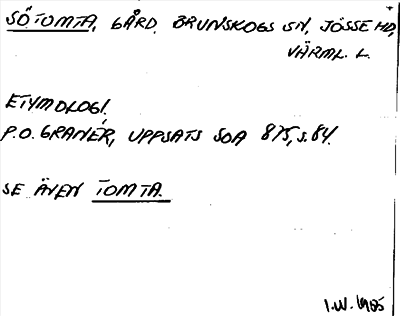 SÖTOMTA, GÅRD, BRUNSKOGS SN, JÖSSE HD,
VÄRML. L.
ETYMOLOGI.
P.O. GRANÉR, UPPSATS SOA 875, S. 84.
SE ÄVEN TOMTA.
I.W. 1985